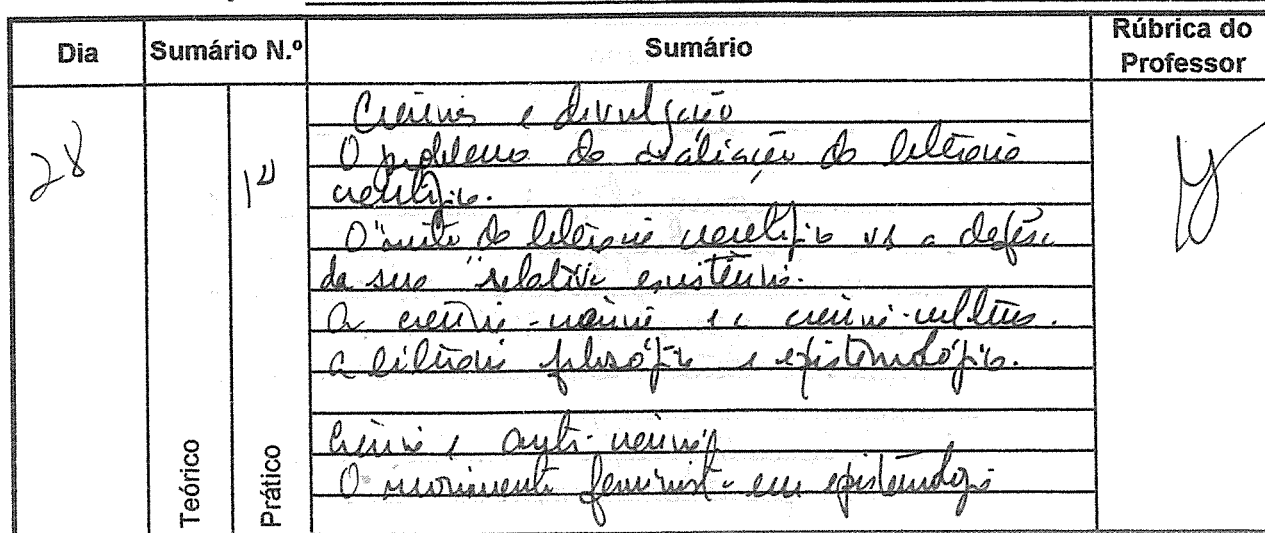 Dia Sumário N.º Sumário Rúbrica do Professor
28
Teórico
Prático
Ciência e divulgação
O problema da avaliação da literacia
científica.
O mito da literacia científica vs a defesa
da sua relativa existência.
A ciência - e a ciência-cultura.
A literacia filosófica e epistemológica.
Ciência e anti-ciência
O movimento feminista em epistemologia